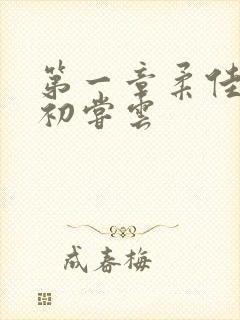 第一章柔佳
初尝云
成春梅